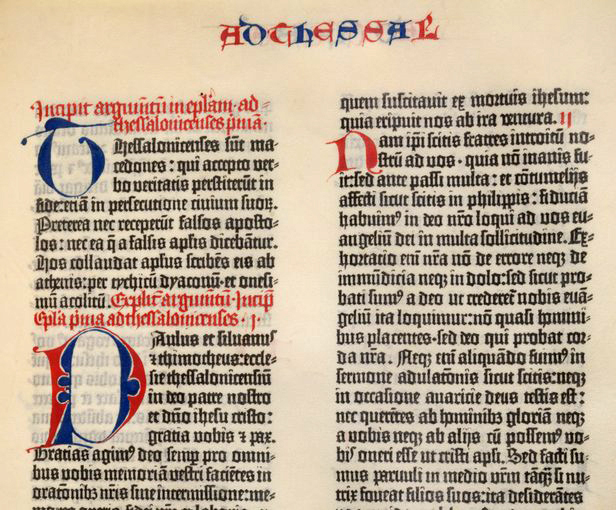 AD THESSAL
Incipit argumētū in ep̄lam ad-
thessalonicenses p̄mā·
Thessalonicenses sūt ma-
cedones: qui accepto ver-
bo veritatis perstiterūt in
fide: etiā in persecutione civium suoꝝ.
Preterea nec receperūt falsos aposto-
los: nec ea q̄ a falsis apl̄is dicebātur.
Hos collaudat apl̄us scribēs eis ab
athenis: per tychicū dyaconū· et onesi-
mū acolitū. Explicit argumētū· Incip̄
Ep̄la p̄ma ad thessalonicenses· i·
Paulus et siluanus
⁊ thimotheus: eccle-
sie thessalonicensiū
in deo patre nostro
et dn̄o ihesu cristo:
gratia vobis ⁊ pax.
Gratias agimꝰ deo semp̄ pro omni-
bus vobis memoriā vestri faciētes in
oratōnibꝫ nr̄is sine intermissione: me-
quem suscitauit ex mortuis ihesum:
quia eripuit nos ab ira ventura. II
Nam ip̄i scitis fratres introitū no-
strū ad vos· quia nō inanis fu-
it: sed ante passi multa: et cōtumelijs
affecti sicut scitis in philippis: fiduciā
habuimꝰ in deo nr̄o loqui ad vos eu-
angeliū dei in multa sollicitudine. Ex-
hortatio eni nr̄a nō de errore neqꝫ de
immūdicia neqꝫ in dolo: sed sicut pro-
bati sumꝰ a deo ut crederet̄ nobis euā-
geliū ita loquimur: nō quasi homini-
bus placentes· sed deo qui probat cor-
da nr̄a. Neqꝫ eni aliquādo fuimꝰ in
sermone adulationis sicut scitis: neqꝫ
in occasione auaricie deus testis est:
nec querētes ab hominibꝫ gloriā neqꝫ
a vobis neqꝫ ab alijs cū possemꝰ vo-
bis oneri esse ut cristi apl̄i. Sed facti su-
mus paruuli in medio vr̄m tāqꝫ si nu-
trix foueat filios suos: ita desiderātes